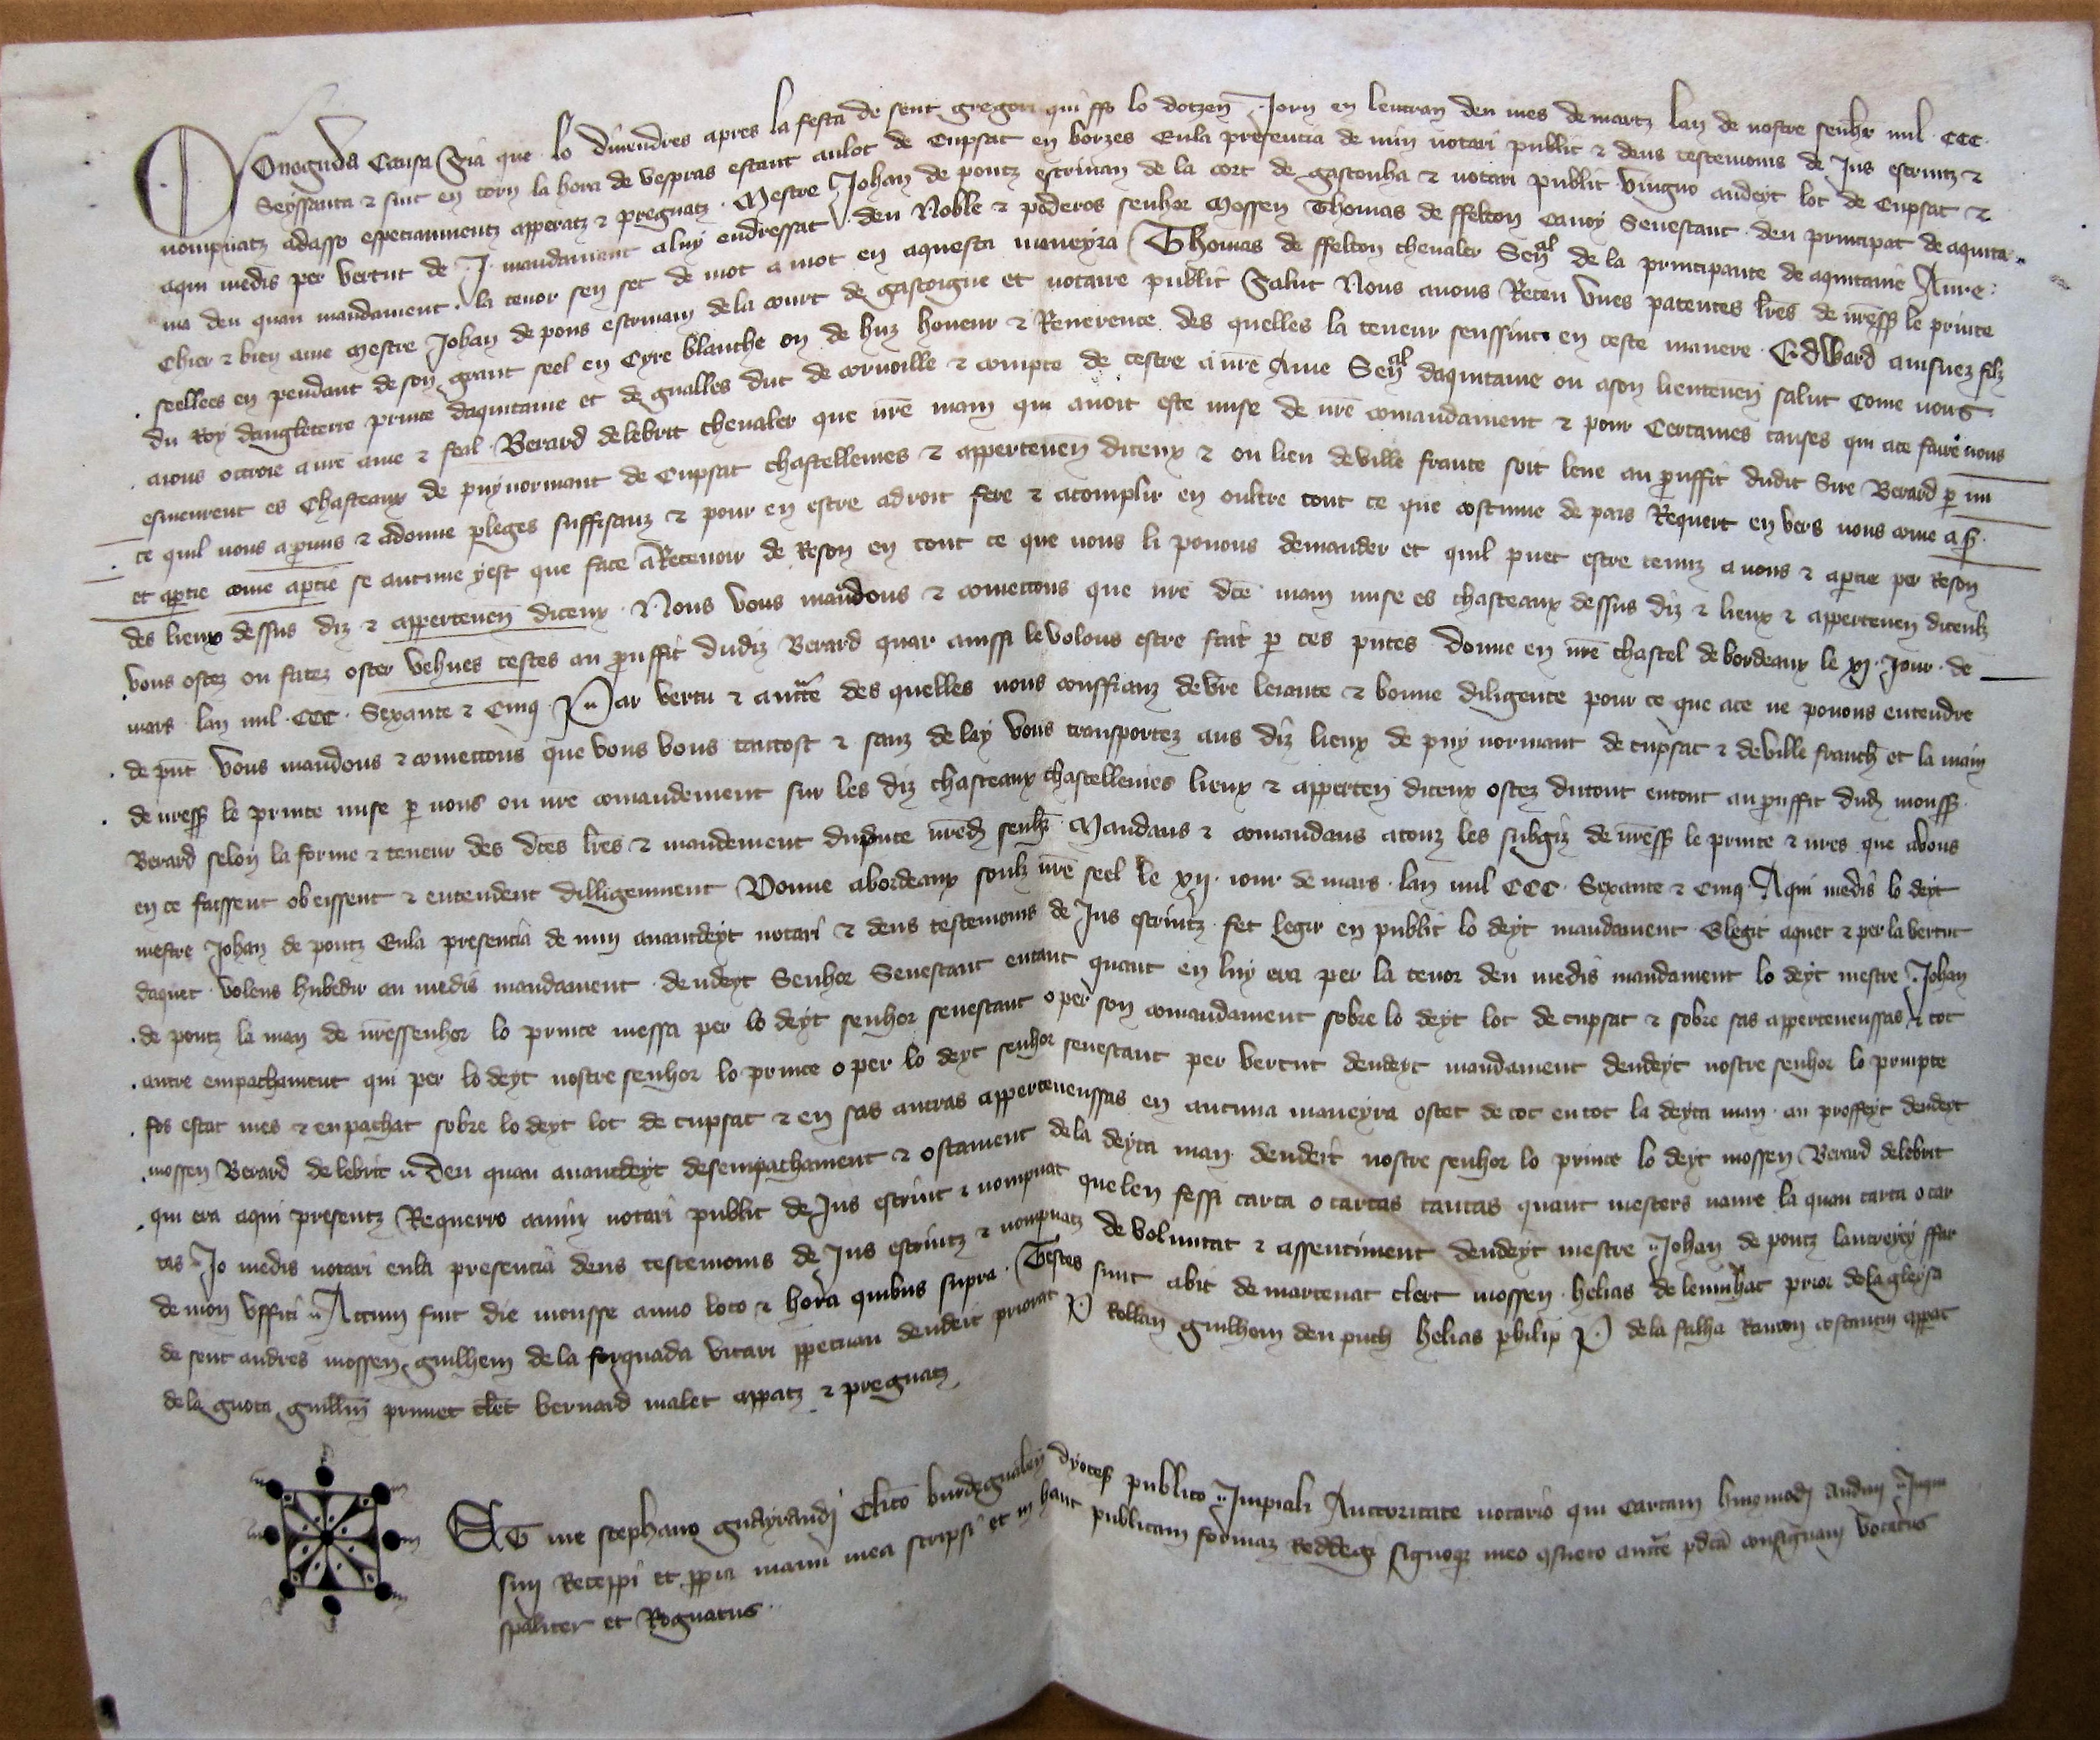 Conoguda Causa Sia que lo diuendres apres la festa de sent gregori qui ffo lo dotzen Jorn en lentran deu mes de martz lan de nostre senhor mil CCC
Seyssanta & sinc en torn la hora de vespras estant au loc de Cupsat en borzes En la presencia de min notari public & deus testemonis de Jus escriutz &
nompnatz adasso especiaumentz apperatz & pregnatz Mestre Johan de pontz escriuan de la cort de gasconha & notari public vinguo audeyt loc de Cupsat &
aqui medis per vertut de J mandament a luy endressat deu Noble & poderos senhor Mossen Thomas de ffelton cauoy Senescaut deu principat de aquita
nia deu quau mandament la tenor sen sec de mot a mot en aquesta maneyra Thomas de ffelton cheualer Senal de la principaute de aquitaine A nre
chier & bien ame Mestre Johan de pons escriuain de la court de gascoigne et notaire public Salut Nous auons Receu vnes patentes lres de nress le prince
seellees en pendant de son grant seel en Cyre blanche ou de huz honeur & Reuerence des quelles la teneur senssiut en ceste manere Edward ainsnez filz
du Roy dangleterre prince daquitaine et de gualles duc de cornoille & compte de cestre a nre ame Senal daquitaine ou a son lieutenen salut Come nous
aions octroie a nre ame & feal Berard delebrit cheualer que nre main qui auoit este mise de nre comandament & pour Certaines causes qui ace faire nous
esmeurent es Chasteaux de puynormant de Cupsat chastellenies & appertenen diceux & ou lieu de ville france soit leue au pruffit dudit Sire Berard p mi
ce quil nous a pmis & a donne pleges suffisanz & pour en estre a droit fere & acomplir en oultre tout ce que costume de pais Requert en vers nous come a s
et aptie come aptie se aucune yest que face a Receuoir de Reson en tout ce que nous li pouons demander et quil puet estre tenuz a nous & aptie per reson
des lieux dessus diz & appertenen diceux Nous vous mandons & comettons que nre dce main mise es chasteaux dessus diz & lieux & appertenen diceulx
vous ostez ou facez oster vehues cestes au pruffit dudiz Berard quar ainssi le volons estre fait p ces pntes donne en nre chastel de bordeaux le xj Jour de
mars lan mil CCC Sexante & Cinq Par vertu & aucte des quelles nous conffianz de vre leaute & bonne diligence pour ce que ace ne pouons entendre
de pnt vous mandons & comettons que vous vous tantost & sanz delay vous transportez aus diz lieux de puy normant de cupsat & de ville franch et la main
de nress le prince mise p nous ou nre comandement sur les diz chasteaux chastellenies lieux & apperten diceux ostez du tout en tout au pruffit dud monss
Berard selon la forme & teneur des dces lres & mandement du prince nred senhr Mandans & comandans a touz les subgiz de nress le prince & nres que a vous
en ce facssent obeissent & entendent dilligenment Donne a bordeaux soulz nre seel le xij iour de mars lan mil CCC Sexante & Cinq Aqui medis lo deyt
mestre Johan de pontz En la presencia de min auantdeyt notari & deus testemonis de Jus escriutz fet legir en public lo deyt mandament E legit aquet & per la vertut
daquet volens hubedir au medis mandament deudeyt Senhor Senescaut entant quant en luy era per la tenor deu medis mandament lo deyt mestre Johan
de pontz la man de nressenhor lo prince messa per lo deyt senhor senescaut o per son comandament sobre lo deyt loc de cupsat & sobre sas appertenenssas & tot
autre empachament qui per lo deyt nostre senhor lo prince o per lo deyt senhor senescaut per vertut deudeyt mandament deudeyt nostre senhor lo princpe
fos estat mes & enpachat sobre lo deyt loc de cupsat & en sas autras appertenenssas en aucuna maneyra ostet de tot en tot la deyta man au proffeyt deudeyt
mossen Berard de lebrit Deu quau auantdeyt desempachament & ostament de la deyta man deudeit nostre senhor lo prince lo deyt mossen Berard delebrit
qui era aqui presentz Requerro a miy notari public de Jus escriut & nompnat que len fessi carta o cartas tantas quant mesters naure la quau carta o car
tas Jo medis notari en la presencia deus testemonis de Jus escriutz & nompnatz de voluntat & assentiment deudeyt mestre Johan de pontz lautreyey ffar
de mon vffici Actum fuit die mensse anno loco & hora quibus supra Testes sunt abit de martenac clerc mossen helias de leminhac prior de la gleysa
de sent andres mossen guilhem de la forquada vicari ppetuau deudeit priorat P Rollan guilhem deu puch helias philip P de la falha Ramon costantin appat
de la guota guillm primet clet bernard malet appatz & preguatz
Et me stephano guayraudi Clico burdegualen dyoces publico Jmpiali Auctoritate notario qui Cartam huiusmodi audiui Jnqui
siui Receppi et ppia manu mea scripsi et in hanc publicam formam Reddegi signoque meo consueto aucte pdca consignaui vocatus
spaliter et Roguatus